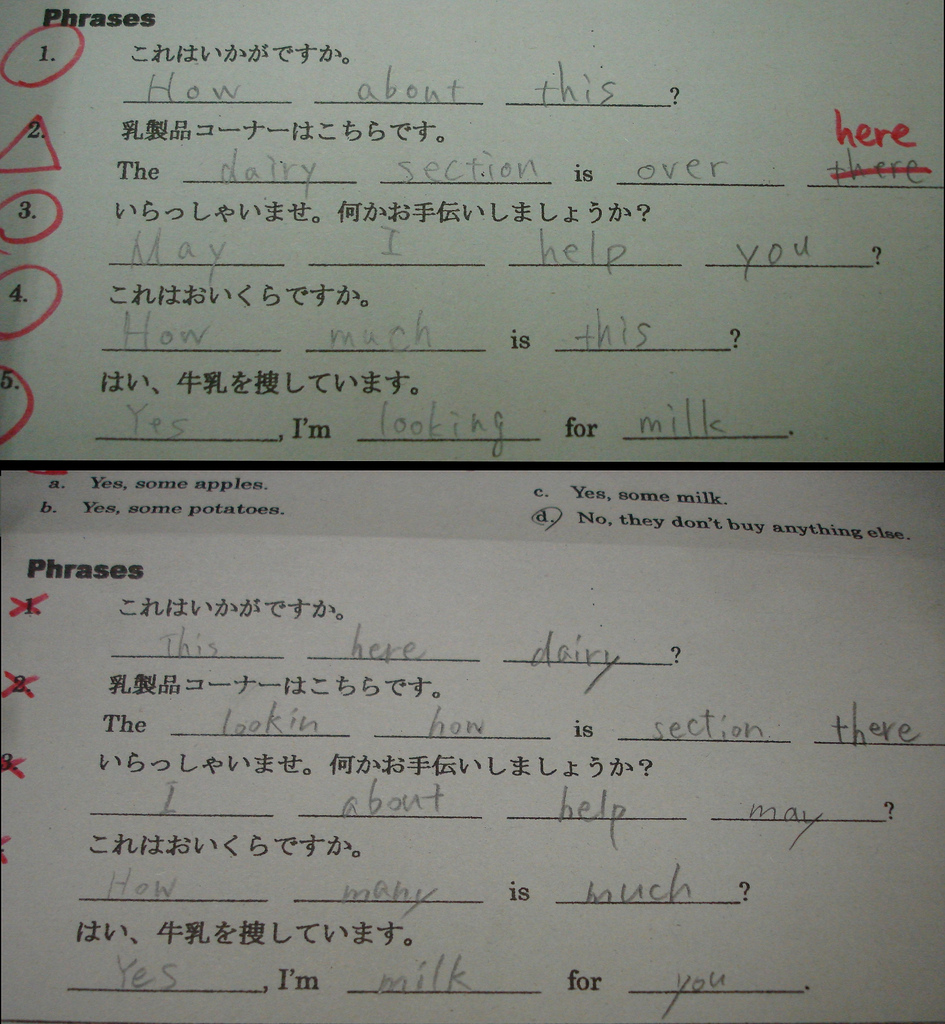 Phrases
1. これはいかがですか。
How about this ?
2. 乳製品コーナーはこちらです。
here
The dairy section is over there
3. いらっしゃいませ。何かお手伝いしましょうか？
May I help you ?
4. これはおいくらですか。
How much is this ?
5. はい、牛乳を捜しています。
Yes , I'm looking for milk .
a. Yes, some apples.
c. Yes, some milk.
b. Yes, some potatoes.
d. No, they don't buy anything else.
Phrases
1. これはいかがですか。
This here dairy ?
2. 乳製品コーナーはこちらです。
The lookin how is section there
3. いらっしゃいませ。何かお手伝いしましょうか？
I about help may ?
これはおいくらですか。
How many is much ?
はい、牛乳を捜しています。
Yes , I'm milk for you .